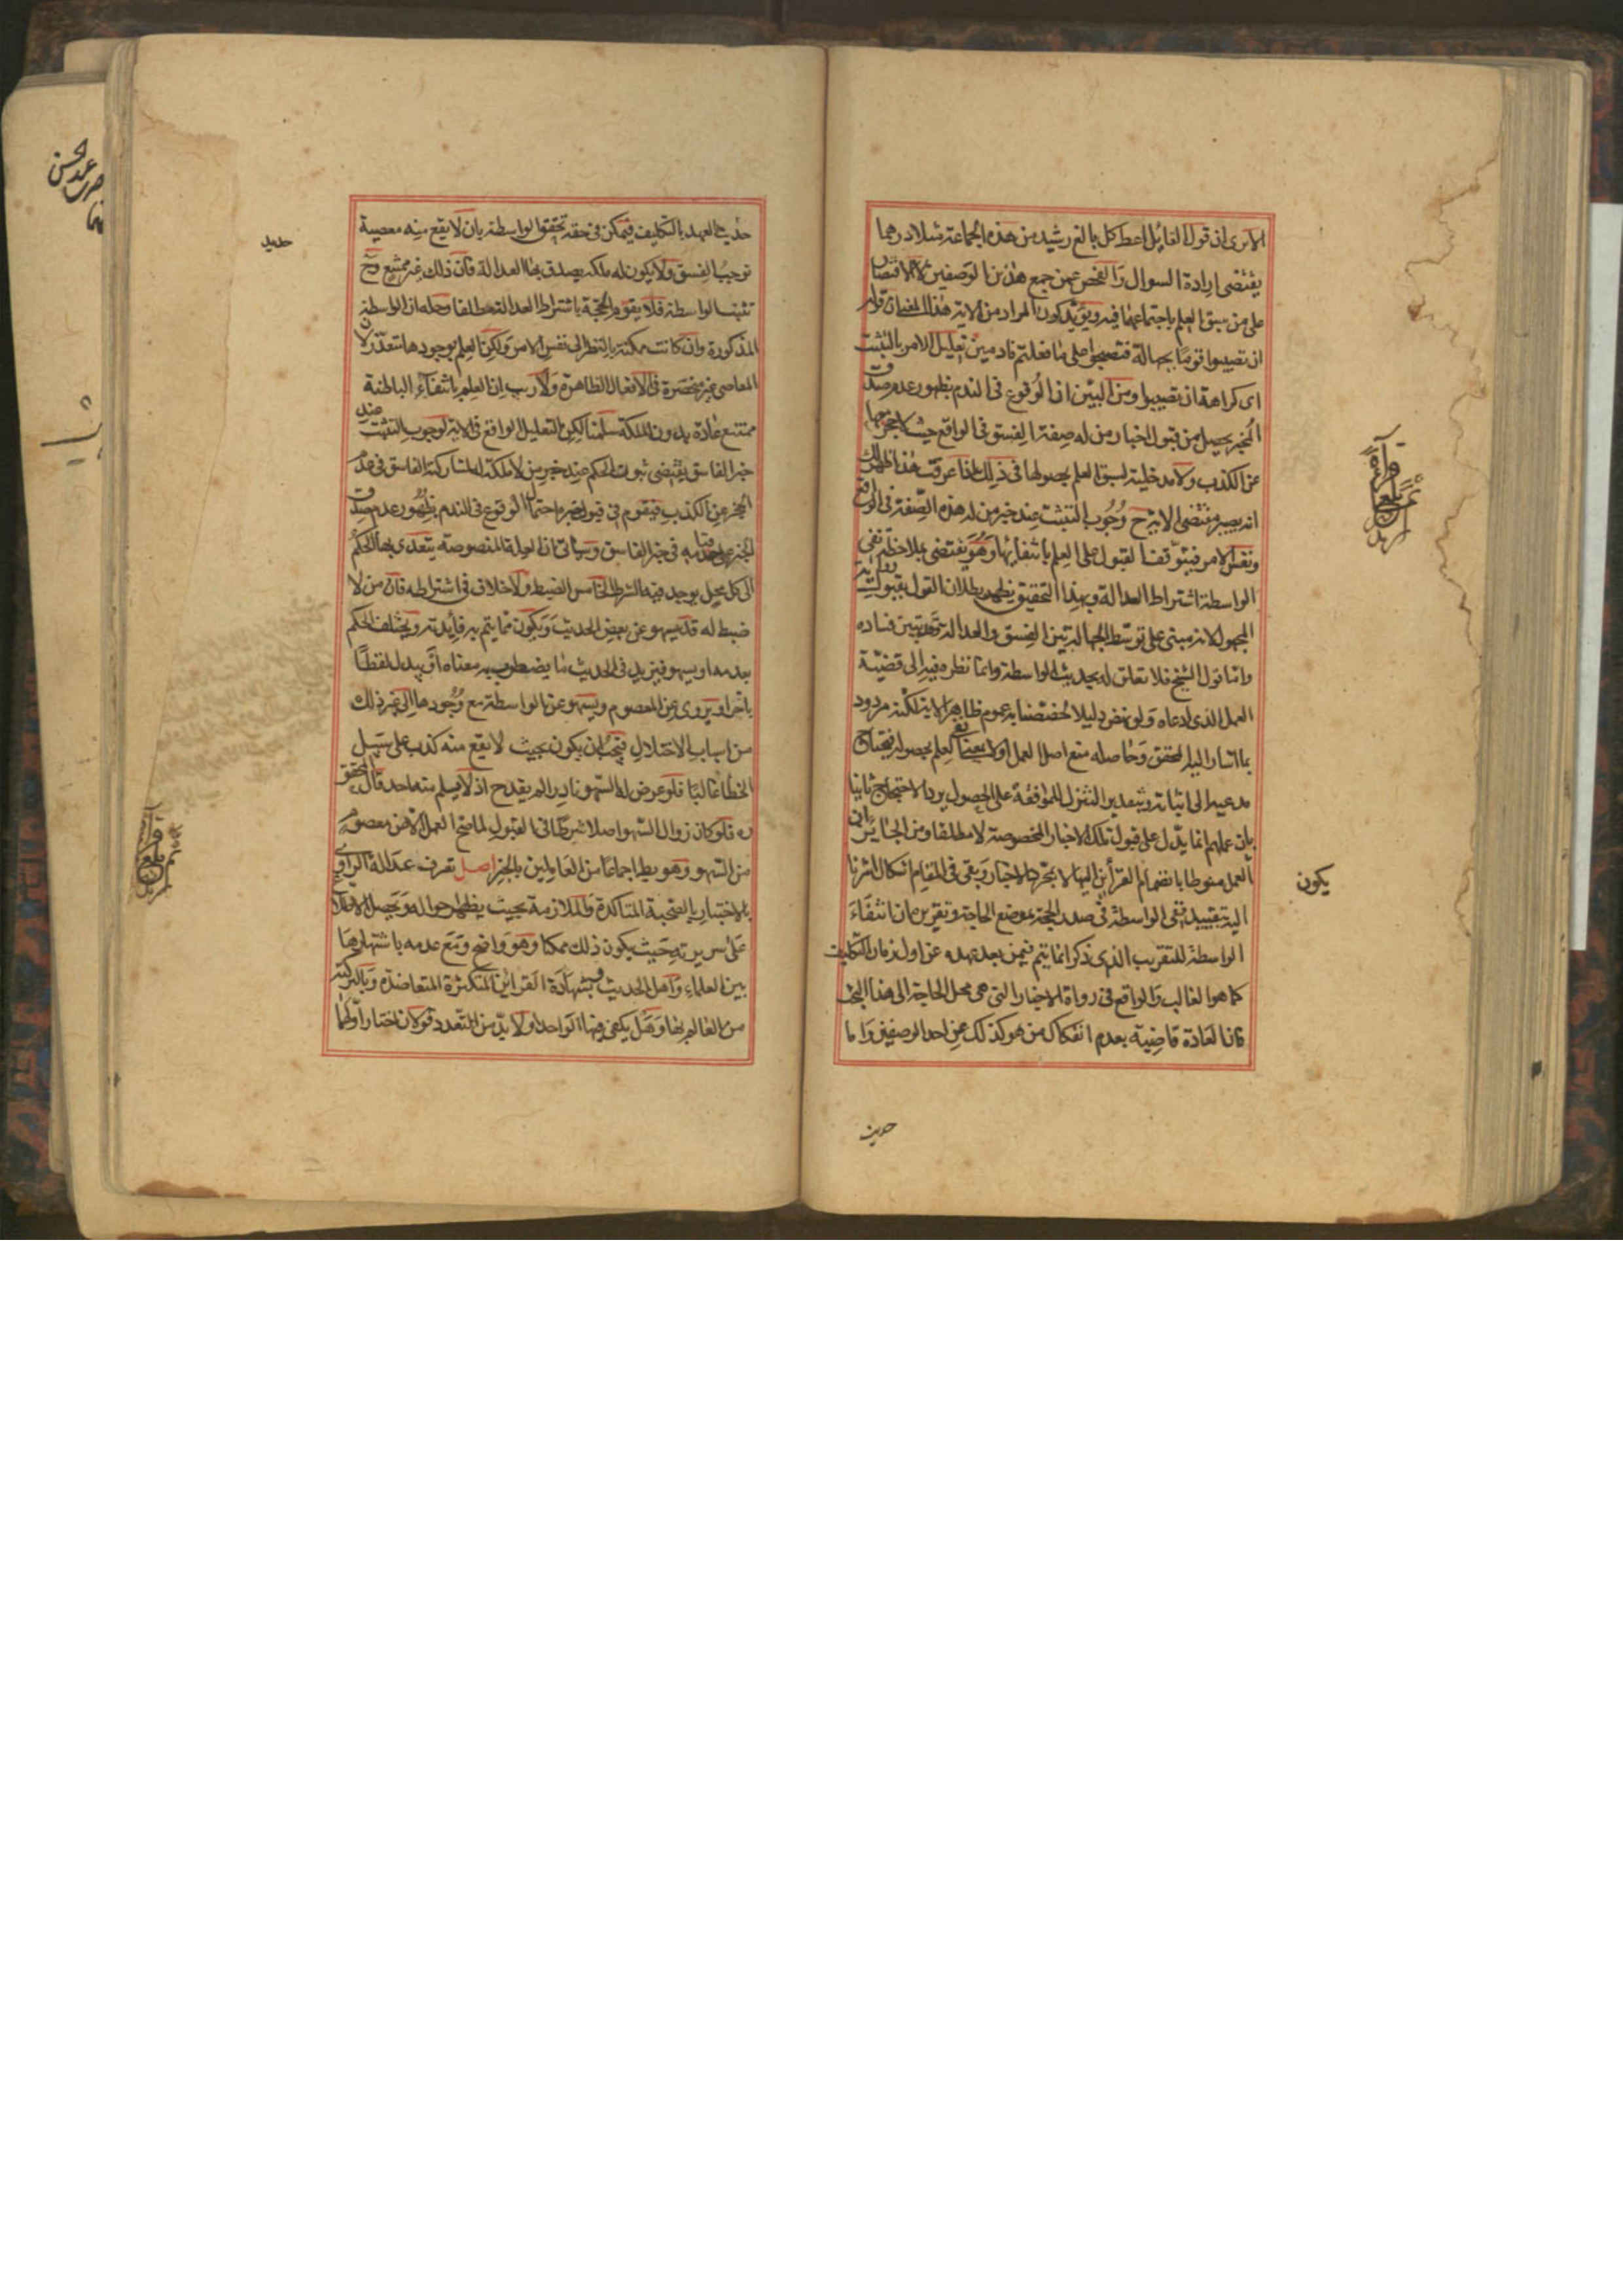 الا ترى ان قول القائل اعط كل بالغ رشيد من هذه الجماعة مثلا درهما
يقتضى ارادة السوال والفحص عمن جمع هذين الوصفين لا الاقتصار
على من سبق العلم باجتماعهما فيه ويؤيد كون المراد من الاية هذا المعنى ان قوله
ان تصيبوا قوما بجهالة فتصبحوا على ما فعلتم نادمين تعليل للامر بالتثبت
اى كراهة ان تصيبوا ومن البين ان الوقوع فى الندم بظهور عدم صدق
المخبر يحصل من قبول اخبار من له صفة الفسق فى الواقع حيث لا حجر معها
عن الكذب ولا مدخلية لسبق العلم بحصولها فى ذلك اذا عرفت هذا ظهر لك
انه يصير مقتضى الاية ح وجوب التثبت عند خبر من له هذه الصفة فى الواقع
ونفس الامر فيتوقف القبول على العلم بانتفائها وهو يقتضى بملاحظة نفى
الواسطة اشتراط العدالة وبهذا التحقيق يظهر بطلان القول بقبول رواية
المجهول لانه مبنى على توسط الجهالة بين الفسق والعدالة وقد تبين فساده
واما قول الشيخ فلا تعلق له بحديث الواسطة وانما نظره فيه الى قضية
العمل الذى ادعاه ولو نهض دليلا لخصصنا به عموم ظاهر الاية لكنه مردود
بما اشار اليه المحقق وحاصله منع اصل العمل اولا بمعنى لم نعلم بحصوله فيحتاج
مدعيه الى اثباته وبتقدير التنزل للموافقة على الحصول يرد الاحتجاج ثانيا
بان عملهم انما يدل على قبول تلك الاخبار المخصوصة لا مطلقا ومن الجايز ان
يكون
العمل منوطا بانضمام القرائن اليها لا بمجرد الاخبار وبقى فى المقام اشكال اشرنا
اليه بتقييد نفى الواسطة فى صدر الحجة بموضع الحاجة وتقريره ان انتفاء
الواسطة للتقريب الذى ذكر انما يتم فيمن بعد عهده عن اول زمان التكليف
كما هو الغالب والواقع فى رواة الاخبار التى هى محل الحاجة الى هذا البحث
فان العادة قاضية بعدم انفكاك من هو كذلك عن احد الوصفين واما
حديث
حديث العهد بالتكليف فيمكن فى حقه تحقق الواسطة بان لا يقع منه معصية
حديد
توجب الفسق ولا يكون له ملكة يصدق بها العدالة فان ذلك غير ممتنع وح
تثبت الواسطة فلا يقوم الحجة باشتراط العدالة مطلقا وحله ان الواسطة
المذكورة وان كانت ممكنة بالنظر الى نفس الامر ولكن العلم بوجودها متعذر لان
المعاصى غير منحصرة فى الافعال الظاهرة ولا ريب ان العلم بانتفاء الباطنة
ممتنع عادة بدون الملكة سلمنا لكن التعليل الواقع فى الاية لوجوب التثبت عند
خبر الفاسق يقتضى ثبوت الحكم عند خبر من لا ملكة له لمشاركة الفاسق فى عدم
الحجر عن الكذب فيقوم فى قبول خبره احتمال الوقوع فى الندم بظهور عدم صدق
المخبر على حد قيامه فى خبر الفاسق وسياتى ان العلة المنصوصة يتعدى بها الحكم
الى كل محل يوجد فيه الشرط الخامس الضبط ولا خلاف فى اشتراطه فان من لا
ضبط له قد يسهو عن بعض الحديث ويكون مما يتم به فائدته ويختلف الحكم
بعدمه او يسهو فيزيد فى الحديث ما يضطرب به معناه او يبدل لفظا
باخر او يروى عن المعصوم ويسهو عن الواسطة مع وجودها الى غير ذلك
من اسباب الاختلال فيجب ان يكون بحيث لا يقع منه كذب على سبيل
الخطأ غالبا فلو عرض له السهو نادرا لم يقدح اذ لا يسلم منه احد قال المحقق
ره فلو كان زوال السهو اصلا شرطا فى القبول لما صح العمل الا عن معصوم
من السهو وهو بط اجماعا من العاملين بالخبر اصل تعرف عدالة الراوى
بالاختبار بالصحبة المتاكدة والملازمة بحيث يظهر احواله ويحصل الاطلاع
على سريرته حيث يكون ذلك ممكنا وهو واضح ومع عدمه باشتهارها
بين العلماء واهل الحديث وبشهادة القرائن المتكثرة المتعاضدة وبالتزكية
من العالم بها وهل يكفى فيها الواحد او لا بد من التعدد قولان اختار اولهما